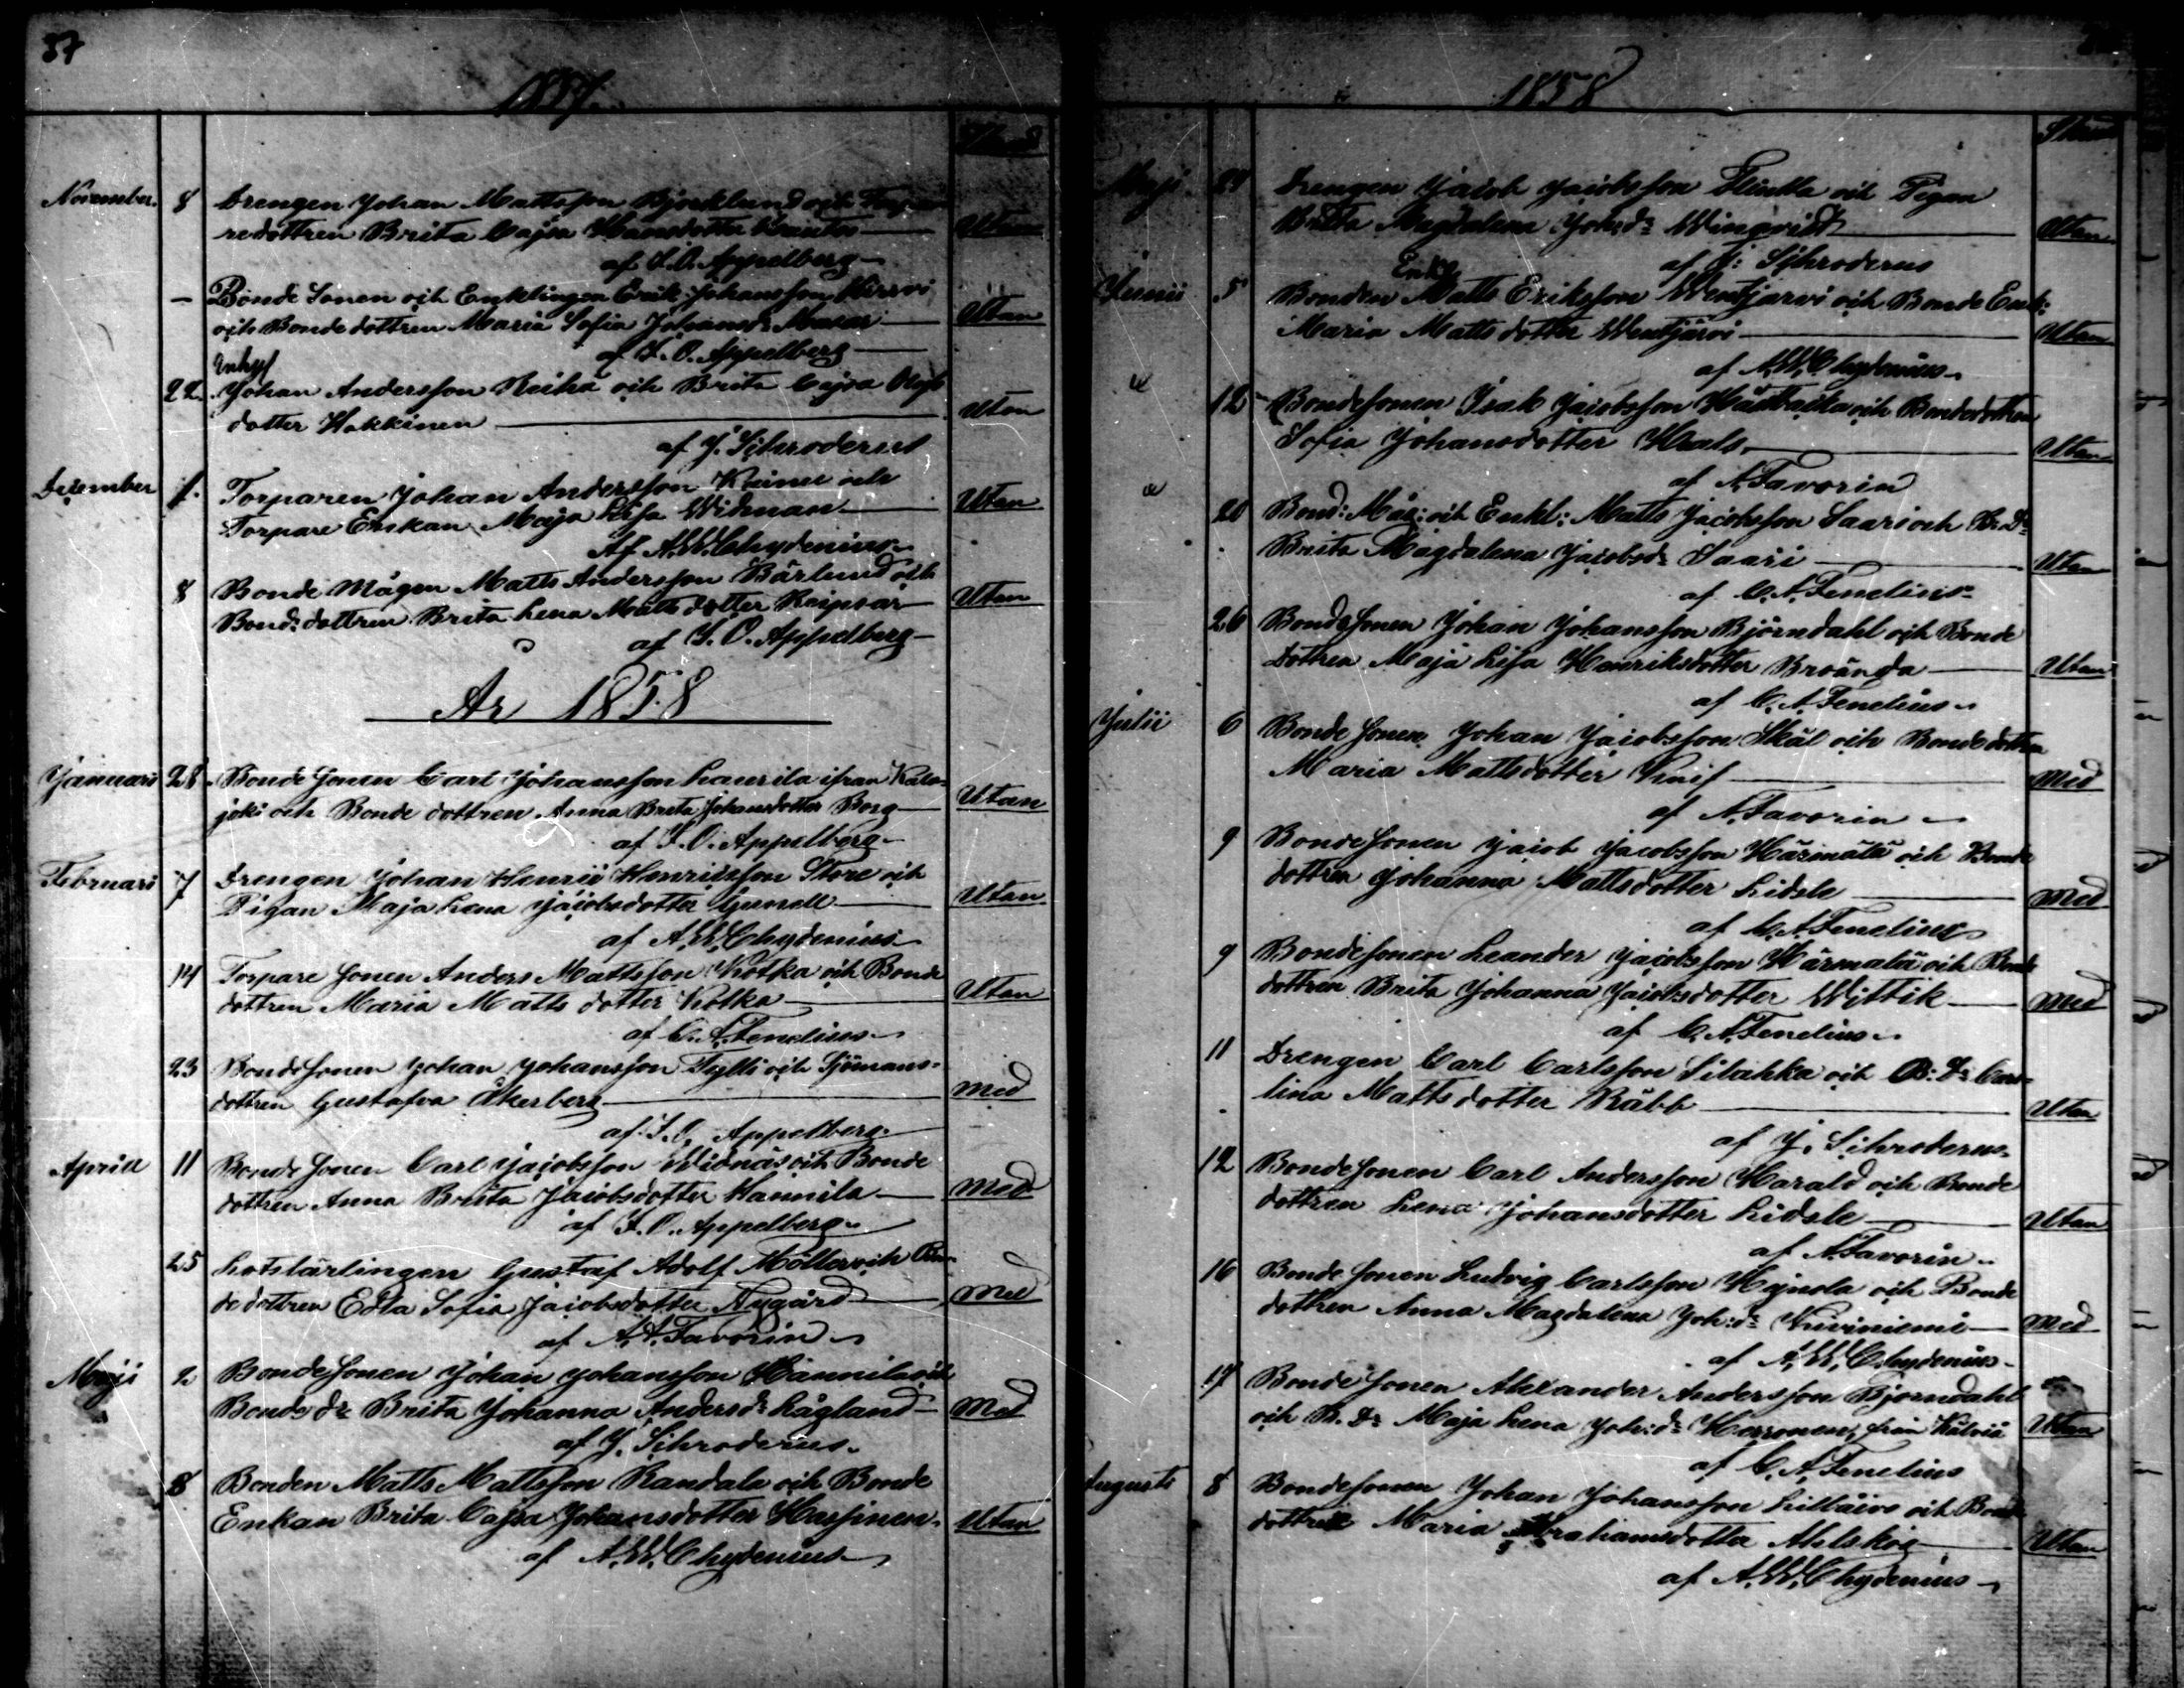 37
1857.
November. 8 Drengen Johan Mattsson Björklund och Torpa-
redottren Brita Cajsa Hansdotter Utan
af I. O. Appelberg
- Bonde Sonen och Enklingen Erik Johansson Hirvi
och Bonde dottren Maria Sofia Johansdr Masar Utan
af I. O. Appelberg
Inhys
22. Johan Andersson Reiha och Brita Cajsa Olofs
dotter Hokkinen Utan
af J. Schroderus
December 1. Torparen Johan Andersson Keiner och
Torpare Enkan Maja Lisa Widman Utan
Af A. W. Chydenius
8 Bonde Mågen Matts Andersson Bärlund och
Bond: dottren Brita Lena Matts dotter Räipsar Utan
af I. O. Appelberg
År 1858
Januari 28. Bonde Sonen Carl Johansson Laurila ifrån Kala-
joki och Bonde dottren Anna Brita Johansdotter Borg Utan
af I. O. Appelberg
Februari 7 Drengen Johan Henric Henricsson Store och
Pigan Maja Lena Jacobsdotter Gunell Utan
af A. W. Chydenius
14 Torpare Sonen Anders Mattsson Kotka och Bonde
dottren Maria Matts dotter Kotka Utan
af C. A. Fenelius
23 Bonde Sonen Johan Johansson Tylli och Sjömans-
dottren Gustafva Åkerberg Med
af I. O. Appelberg
April 11 Bonde Sonen Carl Jacobsson Widnäs och Bonde
dottren Anna Brita Jacobsdotter Hannila Med
af I. O. Appelberg
25 Lotslärlingen Gustaf Adolf Möller och Bon-
de dottren Edla Sofia Jacobsdotter Nygård Med
af A. Favorin
Maji 2 Bonde Sonen Johan Johansson Hannila och
Bonde dr Brita Johanna Andersdr Lågland Med
af J. Schroderus
8 Bonden Matts Mattsson Randala och Bonde
Enkan Brita Cajsa Johansdotter Hassinen Utan
af A. W. Chydenius
1858
Maji 24 Drengen Jacob Jacobsson Slinkla och Pigan
Brita Magdalena Joh:dr Winqvist Utan
af J: Schroderus
Enkl
Junii 5 Bonden Matts Eriksson Wentjärvi och Bonde Enk:
Maria Matts dotter Wentjärvi Utan
af A. W. Chydenius
12 Bonde Sonen Isak Jacobsson Hästbacka och Bondedottren
Sofia Johansdotter Haals Utan
af A. Favorin
20 Bond: Måg: och Enkl: Matts Jacobsson Saari och B: Dr
Brita Magdalena Jacobsdr Saari Utan
af C. A. Fenelius
26 Bonde Sonen Johan Johansson Björndahl och Bonde
Dottren Maja Lisa Henriksdotter Broända Utan
af C. A. Fenelius
Julii 6 Bonde Sonen Johan Jacobsson Skål och Bonde dottren
Maria Mattsdotter Knif Med
af A. Favorin
9 Bonde Sonen Jacob Jacobsson Härmälä och Bonde
dottren Johanna Mattsdotter Lidsle Med
af C. A. Fenelius
9 Bonde Sonen Leander Jacobsson Härmälä och Bonde
dottren Brita Johanna Jacobsdotter Wittik Med
af C. A. Fenelius
11 Drengen Carl Carlsson Silahka och B: Dr Caro-
lina Matts dotter Råbb Utan
af J. Schroderus
12 Bonde Sonen Carl Andersson Harald och Bonde
dottren Lena Johansdotter Lidsle Utan
af A. Favorin
16 Bonde Sonen Ludvig Carlsson Hynola och Bonde
dottren Anna Magdalena Joh:dr Kiviniemi Med
af A. W. Chydenius
17 Bonde Sonen Alexander Andersson Björndahl
och B. Dr Maja Lena Joh:dr Herronen, från Kälviä Utan
af C. A. Fenelius
Augusti 8 Bonde Sonen Johan Johansson Lilkåivo och Bonde
dottren Maria Abrahamsdotter Ahlskog Utan
af A. W. Chydenius